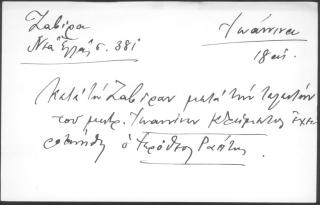 Ζαβίρα
Νέα Ἑλλάς σ. 381
Ἰωάννινα
18 αἰ.
Κατὰ τὸν Ζαβίραν μετὰ τὴν τελευτὴν
τοῦ μητρ. Ἰωαννίνων Κλήμεντος ἐχει
ροτονήθη ὁ Ἱερόθεος Ραπτης.